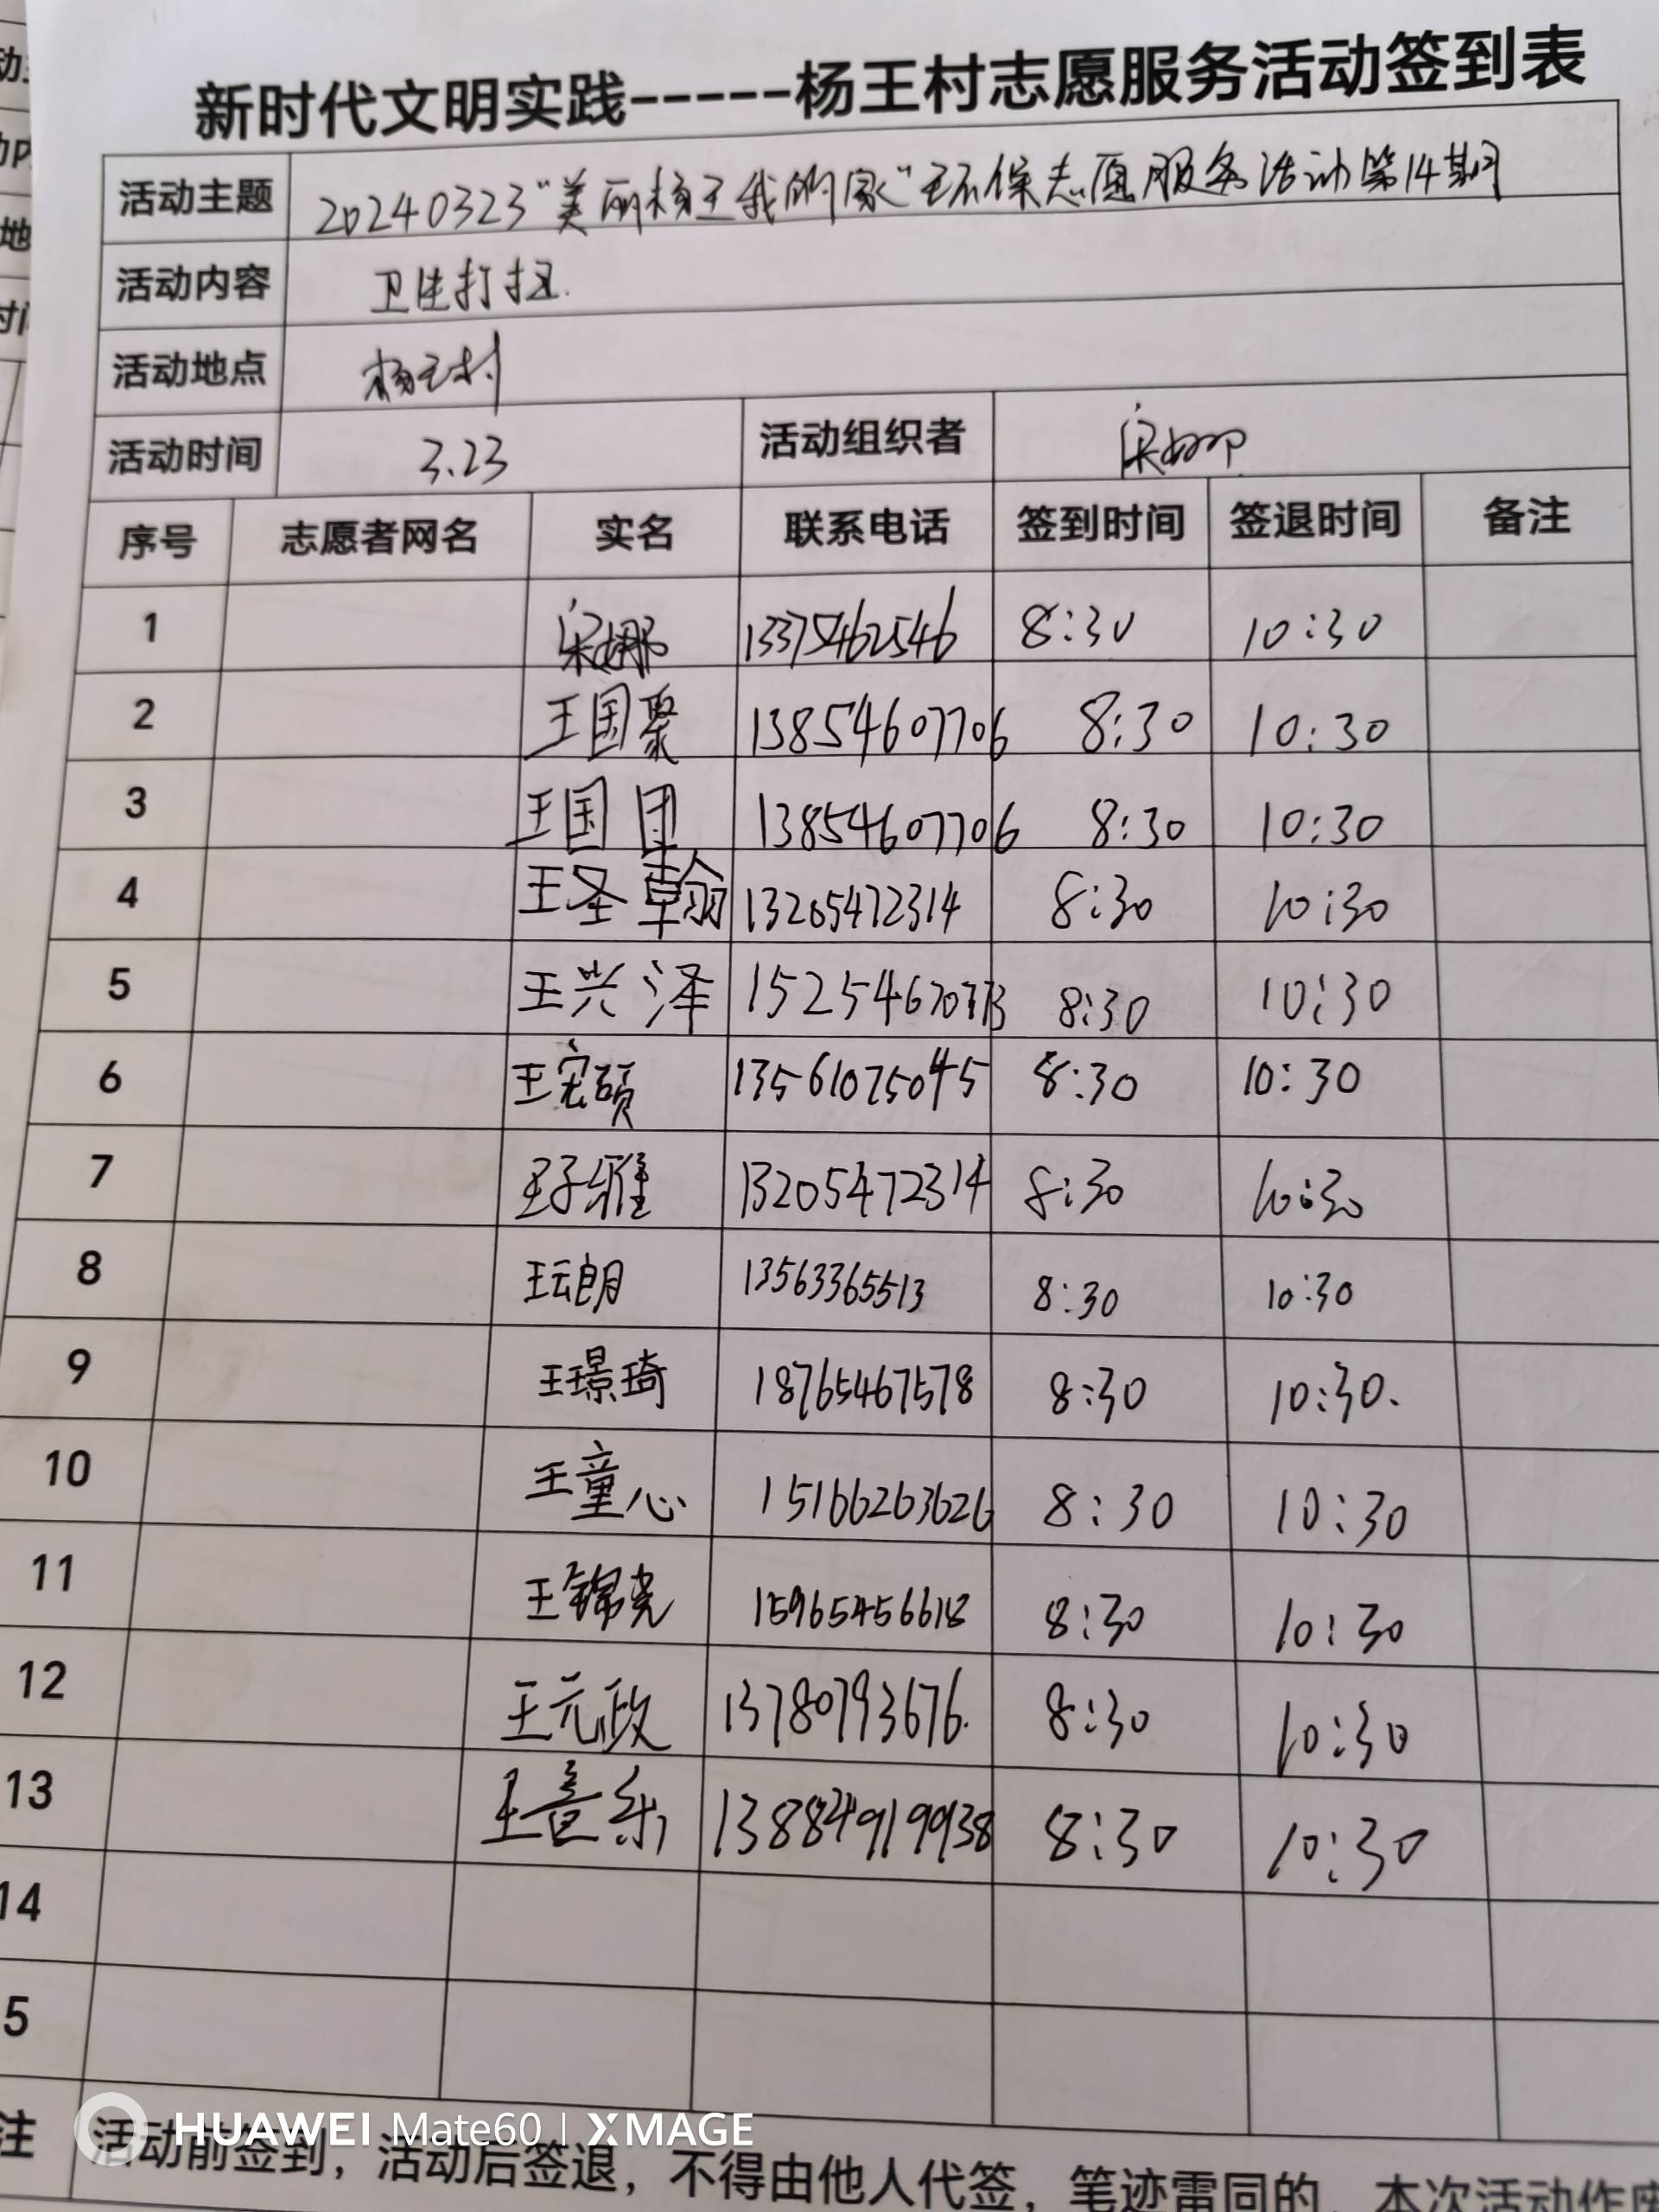 新时代文明实践-----杨王村志愿服务活动签到表
活动主题 20240323“美丽杨王我的家”环保志愿服务活动第14期
活动内容 卫生打扫.
活动地点 杨王村
活动时间 3.23 活动组织者 宋娜
序号 志愿者网名 实名 联系电话 签到时间 签退时间 备注
1 宋娜 13375462546 8:30 10:30
2 王国聚 13854607706 8:30 10:30
3 王国团 13854607706 8:30 10:30
4 王圣翰 13205472314 8:30 10:30
5 王兴泽 8:30 10:30
6 王宏硕 13561075045 8:30 10:30
7 王子雅 13205472314 8:30 10:30
8 王云朗 13563365513 8:30 10:30
9 王璟琦 18765467578 8:30 10:30.
10 王童心 15166263626 8:30 10:30
11 王锦尧 15965456618 8:30 10:30
12 王元政 13780793676. 8:30 10:30
13 王喜乐 8:30 10:30
14
5
注 活动前签到，活动后签退，不得由他人代签，笔迹雷同的，本次活动作废
HUAWEI Mate60 | XMAGE